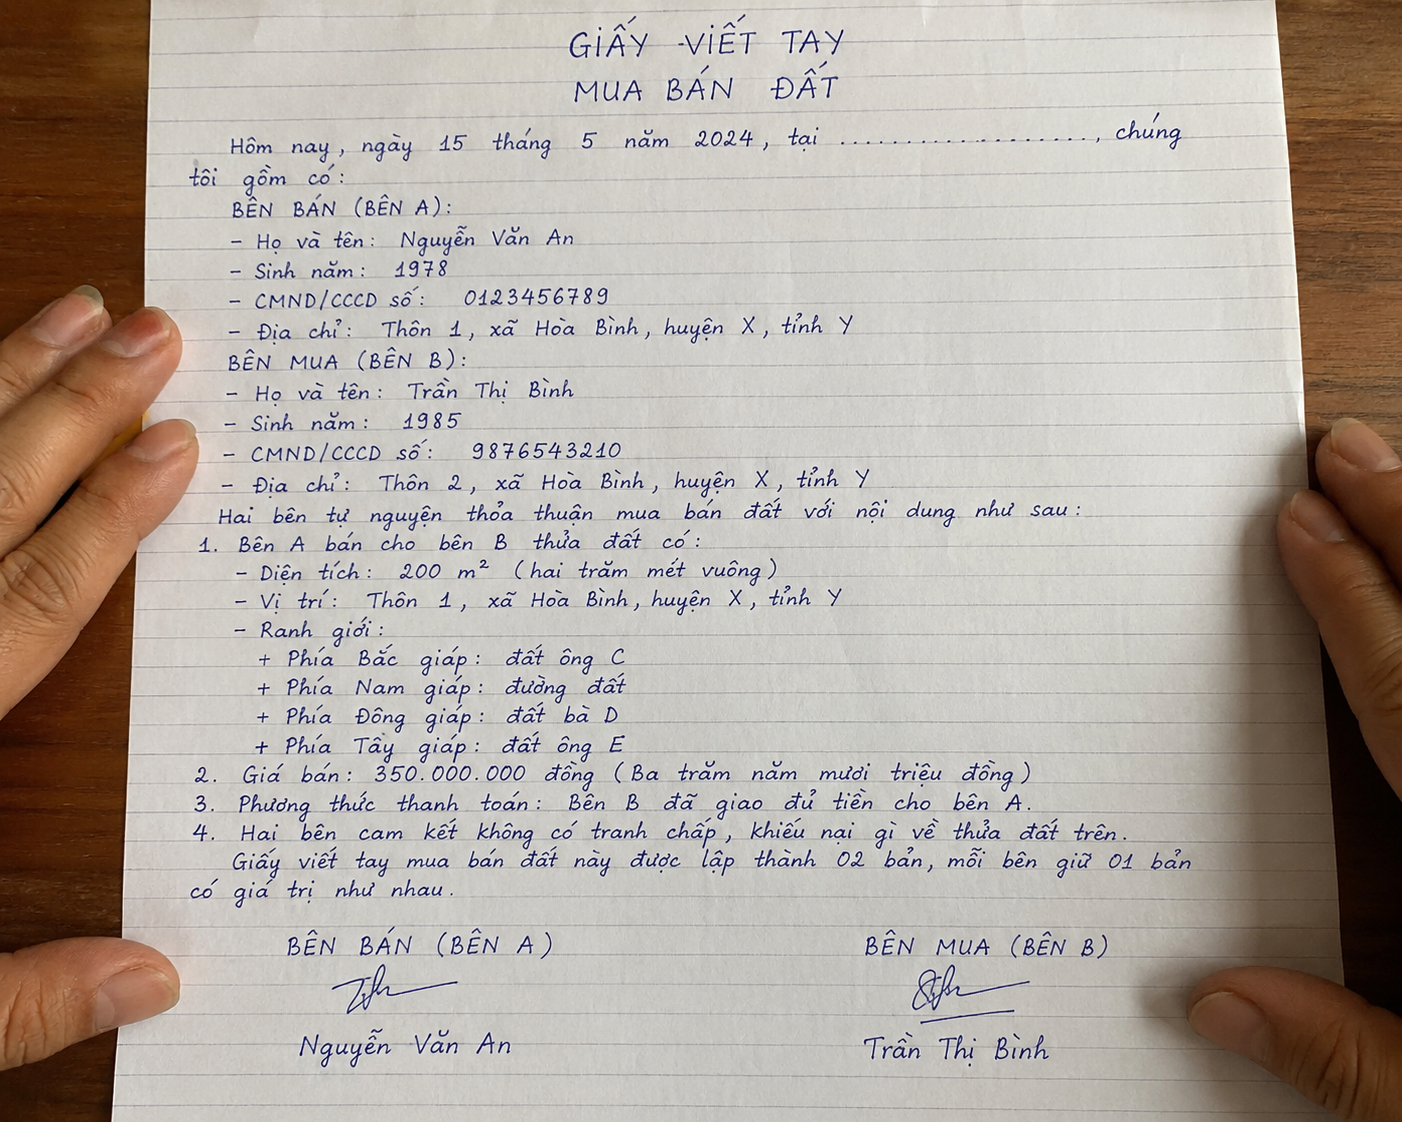 GIẤY -VIẾT TAY
MUA BÁN ĐẤT
Hôm nay, ngày 15 tháng 5 năm 2024, tại ......................, chúng
tôi gồm có:
BÊN BÁN (BÊN A):
- Họ và tên: Nguyễn Văn An
- Sinh năm: 1978
- CMND/CCCD số: 0123456789
- Địa chỉ: Thôn 1, xã Hòa Bình, huyện X, tỉnh Y
BÊN MUA (BÊN B):
- Họ và tên: Trần Thị Bình
- Sinh năm: 1985
- CMND/CCCD số: 9876543210
- Địa chỉ: Thôn 2, xã Hòa Bình, huyện X, tỉnh Y
Hai bên tự nguyện thỏa thuận mua bán đất với nội dung như sau:
1. Bên A bán cho bên B thửa đất có:
- Diện tích: 200 m² (hai trăm mét vuông)
- Vị trí: Thôn 1, xã Hòa Bình, huyện X, tỉnh Y
- Ranh giới:
+ Phía Bắc giáp: đất ông C
+ Phía Nam giáp: đường đất
+ Phía Đông giáp: đất bà D
+ Phía Tây giáp: đất ông E
2. Giá bán: 350.000.000 đồng (Ba trăm năm mươi triệu đồng)
3. Phương thức thanh toán: Bên B đã giao đủ tiền cho bên A.
4. Hai bên cam kết không có tranh chấp, khiếu nại gì về thửa đất trên.
Giấy viết tay mua bán đất này được lập thành 02 bản, mỗi bên giữ 01 bản
có giá trị như nhau.
BÊN BÁN (BÊN A)
BÊN MUA (BÊN B)
Nguyễn Văn An
Trần Thị Bình